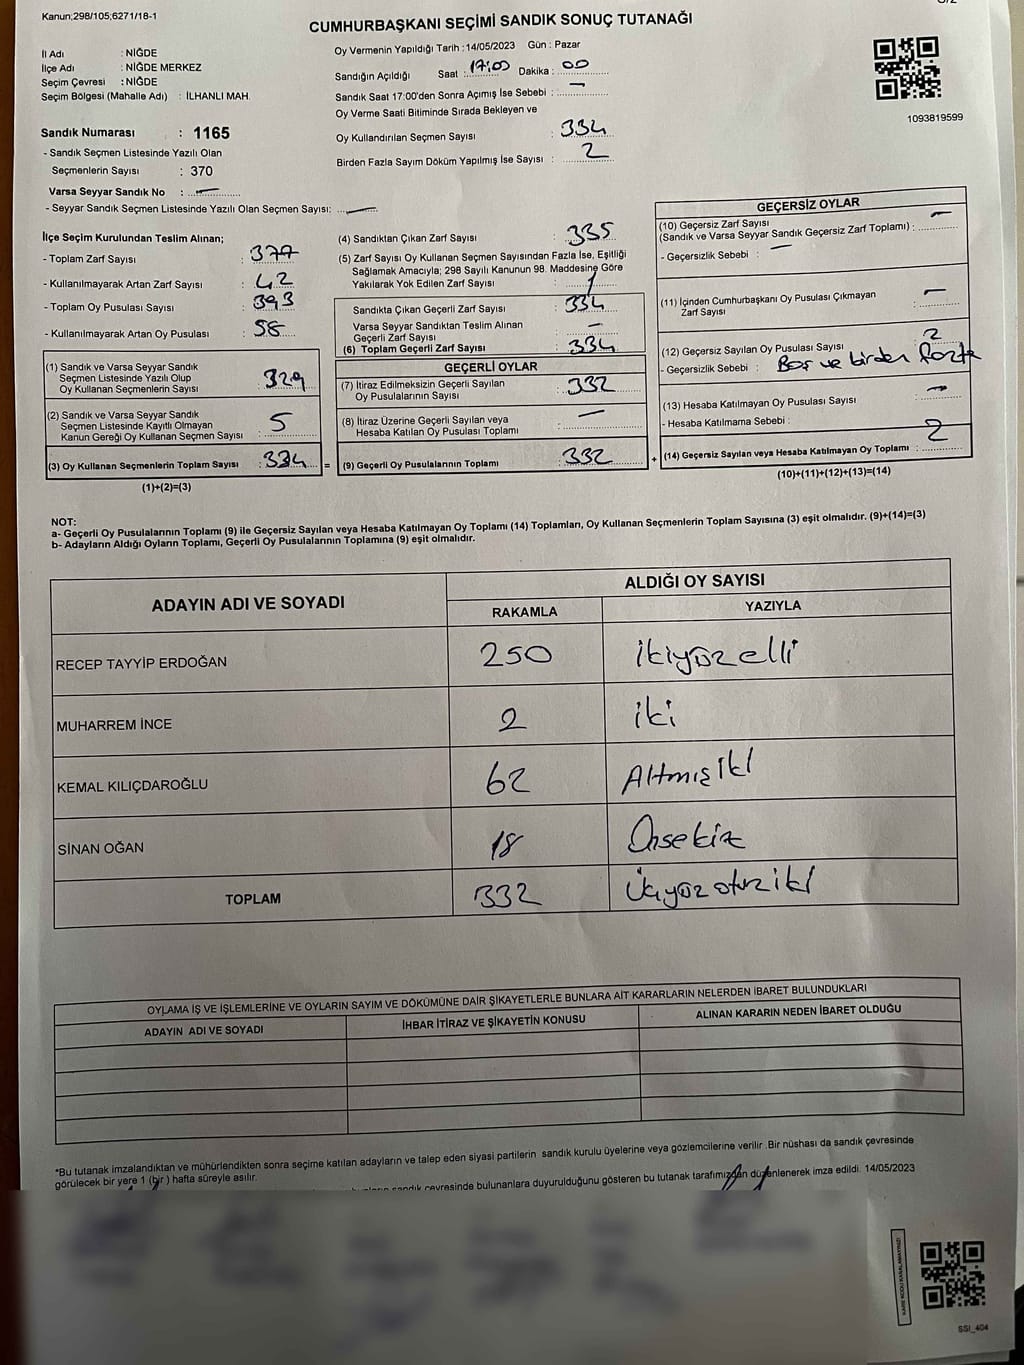 Kanun;298/105;6271/18-1
CUMHURBAŞKANI SEÇİMİ SANDIK SONUÇ TUTANAĞI
İl Adı : NİĞDE
İlçe Adı : NİĞDE MERKEZ
Seçim Çevresi : NİĞDE
Seçim Bölgesi (Mahalle Adı) : İLHANLI MAH.
Sandık Numarası : 1165
- Sandık Seçmen Listesinde Yazılı Olan
Seçmenlerin Sayısı : 370
Varsa Seyyar Sandık No : —
- Seyyar Sandık Seçmen Listesinde Yazılı Olan Seçmen Sayısı: —
Oy Vermenin Yapıldığı Tarih : 14/05/2023 Gün : Pazar
Sandığın Açıldığı Saat : 17:00 Dakika : 00
Sandık Saat 17:00'den Sonra Açımış İse Sebebi : —
Oy Verme Saati Bitiminde Sırada Bekleyen ve
Oy Kullandırılan Seçmen Sayısı : 334
Birden Fazla Sayım Döküm Yapılmış İse Sayısı : 2
1093819599
İlçe Seçim Kurulundan Teslim Alınan;
- Toplam Zarf Sayısı : 377
- Kullanılmayarak Artan Zarf Sayısı : 42
- Toplam Oy Pusulası Sayısı : 393
- Kullanılmayarak Artan Oy Pusulası : 58
(1) Sandık ve Varsa Seyyar Sandık
Seçmen Listesinde Yazılı Olup
Oy Kullanan Seçmenlerin Sayısı : 329
(2) Sandık ve Varsa Seyyar Sandık
Seçmen Listesinde Kayıtlı Olmayan
Kanun Gereği Oy Kullanan Seçmen Sayısı : 5
(3) Oy Kullanan Seçmenlerin Toplam Sayısı : 334 =
(1)+(2)=(3)
(4) Sandıktan Çıkan Zarf Sayısı : 335
(5) Zarf Sayısı Oy Kullanan Seçmen Sayısından Fazla İse, Eşitliği
Sağlamak Amacıyla; 298 Sayılı Kanunun 98. Maddesine Göre
Yakılarak Yok Edilen Zarf Sayısı : 1
Sandıkta Çıkan Geçerli Zarf Sayısı : 334
Varsa Seyyar Sandıktan Teslim Alınan
Geçerli Zarf Sayısı : —
(6) Toplam Geçerli Zarf Sayısı : 334
GEÇERLİ OYLAR
(7) İtiraz Edilmeksizin Geçerli Sayılan
Oy Pusulalarının Sayısı : 332
(8) İtiraz Üzerine Geçerli Sayılan veya
Hesaba Katılan Oy Pusulası Toplamı : —
(9) Geçerli Oy Pusulalarının Toplamı : 332 +
GEÇERSİZ OYLAR
(10) Geçersiz Zarf Sayısı
(Sandık ve Varsa Seyyar Sandık Geçersiz Zarf Toplamı) : —
- Geçersizlik Sebebi : —
(11) İçinden Cumhurbaşkanı Oy Pusulası Çıkmayan
Zarf Sayısı : —
(12) Geçersiz Sayılan Oy Pusulası Sayısı : 2
- Geçersizlik Sebebi : Boş ve birden fazla
(13) Hesaba Katılmayan Oy Pusulası Sayısı : —
- Hesaba Katılmama Sebebi :
(14) Geçersiz Sayılan veya Hesaba Katılmayan Oy Toplamı : 2
(10)+(11)+(12)+(13)=(14)
NOT:
a- Geçerli Oy Pusulalarının Toplamı (9) ile Geçersiz Sayılan veya Hesaba Katılmayan Oy Toplamı (14) Toplamları, Oy Kullanan Seçmenlerin Toplam Sayısına (3) eşit olmalıdır. (9)+(14)=(3)
b- Adayların Aldığı Oyların Toplamı, Geçerli Oy Pusulalarının Toplamına (9) eşit olmalıdır.
ADAYIN ADI VE SOYADI ALDIĞI OY SAYISI
RAKAMLA YAZIYLA
RECEP TAYYİP ERDOĞAN 250 ikiyüzelli
MUHARREM İNCE 2 iki
KEMAL KILIÇDAROĞLU 62 Altmışiki
SİNAN OĞAN 18 Onsekiz
TOPLAM 332 Üçyüzotuziki
OYLAMA İŞ VE İŞLEMLERİNE VE OYLARIN SAYIM VE DÖKÜMÜNE DAİR ŞİKAYETLERLE BUNLARA AİT KARARLARIN NELERDEN İBARET BULUNDUKLARI
ADAYIN ADI VE SOYADI İHBAR İTİRAZ VE ŞİKAYETİN KONUSU ALINAN KARARIN NEDEN İBARET OLDUĞU
*Bu tutanak imzalandıktan ve mühürlendikten sonra seçime katılan adayların ve talep eden siyasi partilerin sandık kurulu üyelerine veya gözlemcilerine verilir .Bir nüshası da sandık çevresinde
görülecek bir yere 1 (bir ) hafta süreyle asılır.
sandık çevresinde bulunanlara duyurulduğunu gösteren bu tutanak tarafımızdan düzenlenerek imza edildi. 14/05/2023
SSI_404